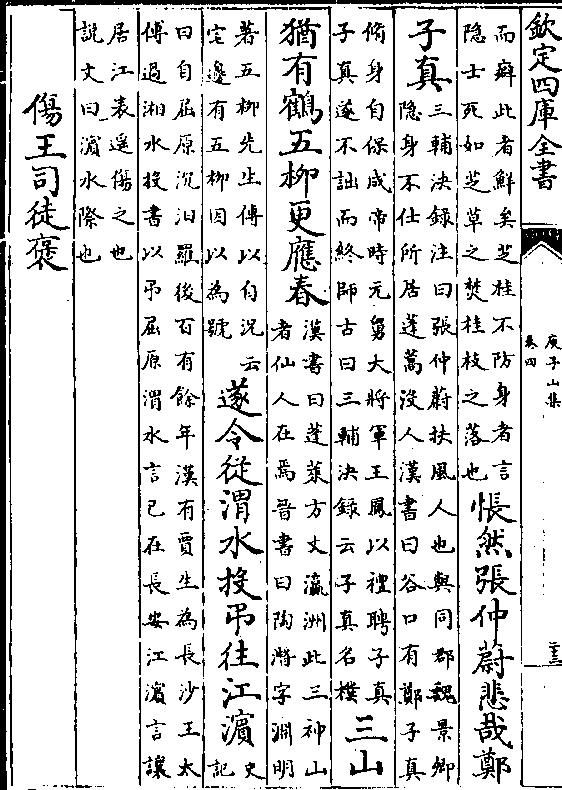 欽定四庫全書
庾子山集
卷四
二十三
而癖此者鮮矣芝桂不防身者言
隱士死如芝草之焚桂枝之落也
悵然張仲蔚悲哉鄭
子真
三輔決錄注曰張仲蔚扶風人也與同郡魏景卿
隱身不仕所居蓬蒿沒人漢書曰谷口有鄭子真
脩身自保成帝時元舅大將軍王鳳以禮聘子真
子真遂不詘而終師古曰三輔決録云子真名樸
三山
猶有鶴五柳更應春
漢書曰蓬萊方丈瀛洲此三神山
者仙人在焉晉書曰陶濳字淵明
著五柳先生傳以自況云
宅邊有五柳因以為號
遂令從渭水投弔往江濵
史
記
曰自屈原沉汨羅後百有餘年漢有賈生為長沙王太
傅過湘水投書以弔屈原渭水言已在長安江濵言讓
居江表遥傷之也
説文曰濵水際也
傷王司徒褒